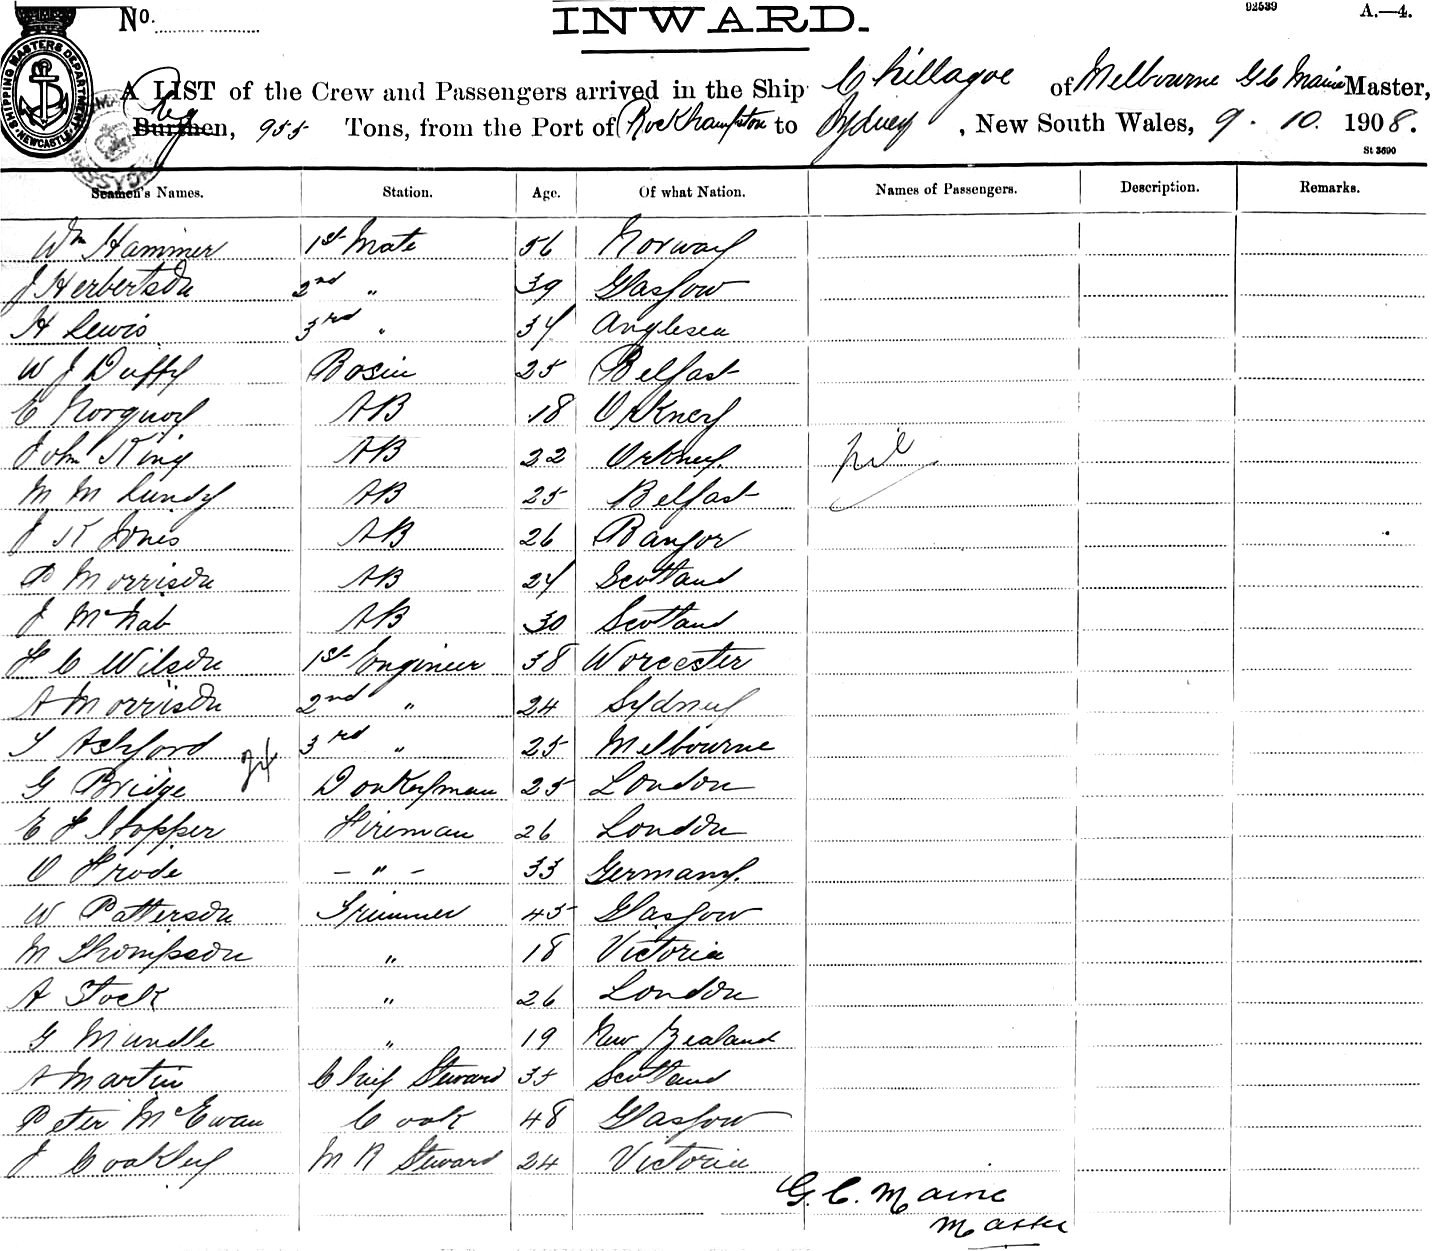 No. INWARD. 92539 A.—4.
SHIPPING MASTERS DEPARTMENT NEWCASTLE
A LIST of the Crew and Passengers arrived in the Ship Chillagoe of Melbourne G C Maine Master,
Burthen, Reg 955 Tons, from the Port of Rockhampton to Sydney, New South Wales, 9 . 10. 1908.
St 3690
Seamen's Names. Station. Age. Of what Nation. Names of Passengers. Description. Remarks.
Wm Hammer 1st Mate 56 Norway
J Herbertson 2nd " 39 Glasgow
H Lewis 3rd " 34 Anglesea
W J Duffy Bosin 25 Belfast
C Norquoy AB 18 Orkney
John King AB 22 Orkney. nil
M M Lundy AB 25 Belfast
J K Jones AB 26 Bangor
P Morrison AB 24 Scotland
J McNab AB 30 Scotland
F C Wilson 1st Engineer 38 Worcester
A Morrison 2nd " 24 Sydney
S Ashford 3rd " 25 Melbourne
G Bridge 24 Donkeyman 25 London
E F Hopper Fireman 26 London
O Frode — " — 33 Germany.
W Patterson Trimmer 45 Glasgow
M Thompson " 18 Victoria
A Stock " 26 London
G Mundle " 19 New Zealand
A Martin Chief Steward 35 Scotland
Peter McEwan Cook 48 Glasgow
J Coakley M R Steward 24 Victoria
G. C. Maine
Master